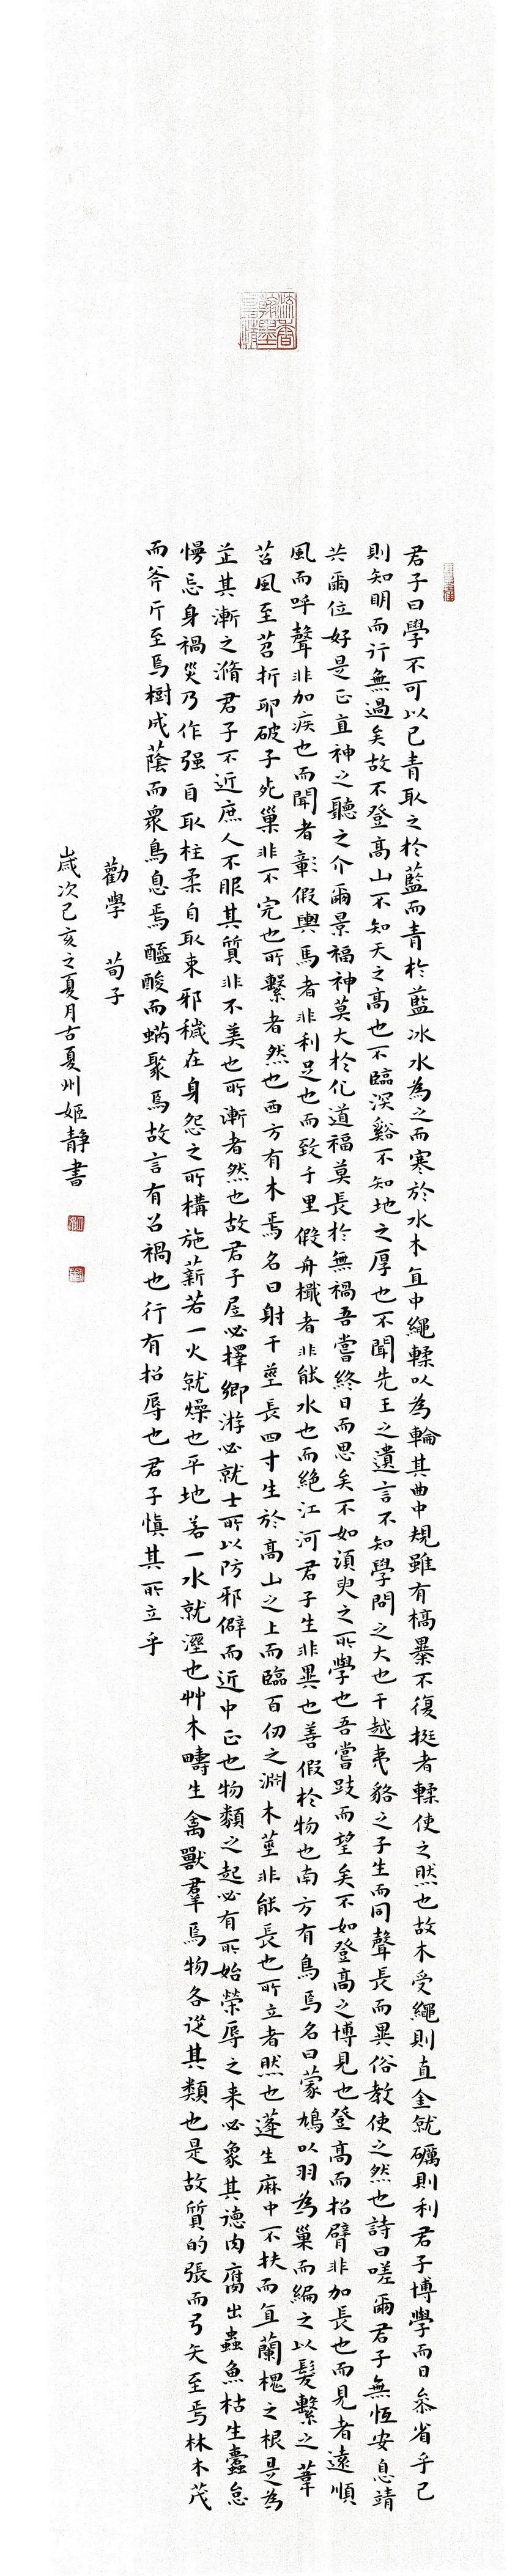 君子曰學不可以已青取之於藍而青於藍冰水為之而寒於水木直中繩輮以為輪其曲中規雖有槁暴不復挺者輮使之然也故木受繩則直金就礪則利君子博學而日參省乎己
則知明而行無過矣故不登高山不知天之高也不臨深谿不知地之厚也不聞先王之遺言不知學問之大也干越夷貉之子生而同聲長而異俗教使之然也詩曰嗟爾君子無恆安息靖
共爾位好是正直神之聽之介爾景福神莫大於化道福莫長於無禍吾嘗終日而思矣不如須臾之所學也吾嘗跂而望矣不如登高之博見也登高而招臂非加長也而見者遠順
風而呼聲非加疾也而聞者彰假輿馬者非利足也而致千里假舟檝者非能水也而絕江河君子生非異也善假於物也南方有鳥焉名曰蒙鳩以羽為巢而編之以髮繫之葦
苕風至苕折卵破子死巢非不完也所繫者然也西方有木焉名曰射干莖長四寸生於高山之上而臨百仞之淵木莖非能長也所立者然也蓬生麻中不扶而直蘭槐之根是為
芷其漸之滫君子不近庶人不服其質非不美也所漸者然也故君子居必擇鄉游必就士所以防邪僻而近中正也物類之起必有所始榮辱之来必象其德肉腐出蟲魚枯生蠹怠
慢忘身禍災乃作强自取柱柔自取束邪穢在身怨之所構施薪若一火就燥也平地若一水就溼也艸木疇生禽獸羣焉物各從其類也是故質的張而弓矢至焉林木茂
而斧斤至焉樹成蔭而衆鳥息焉醯酸而蜹聚焉故言有召禍也行有招辱也君子慎其所立乎
勸學 荀子
歲次己亥之夏月古夏州姬靜書